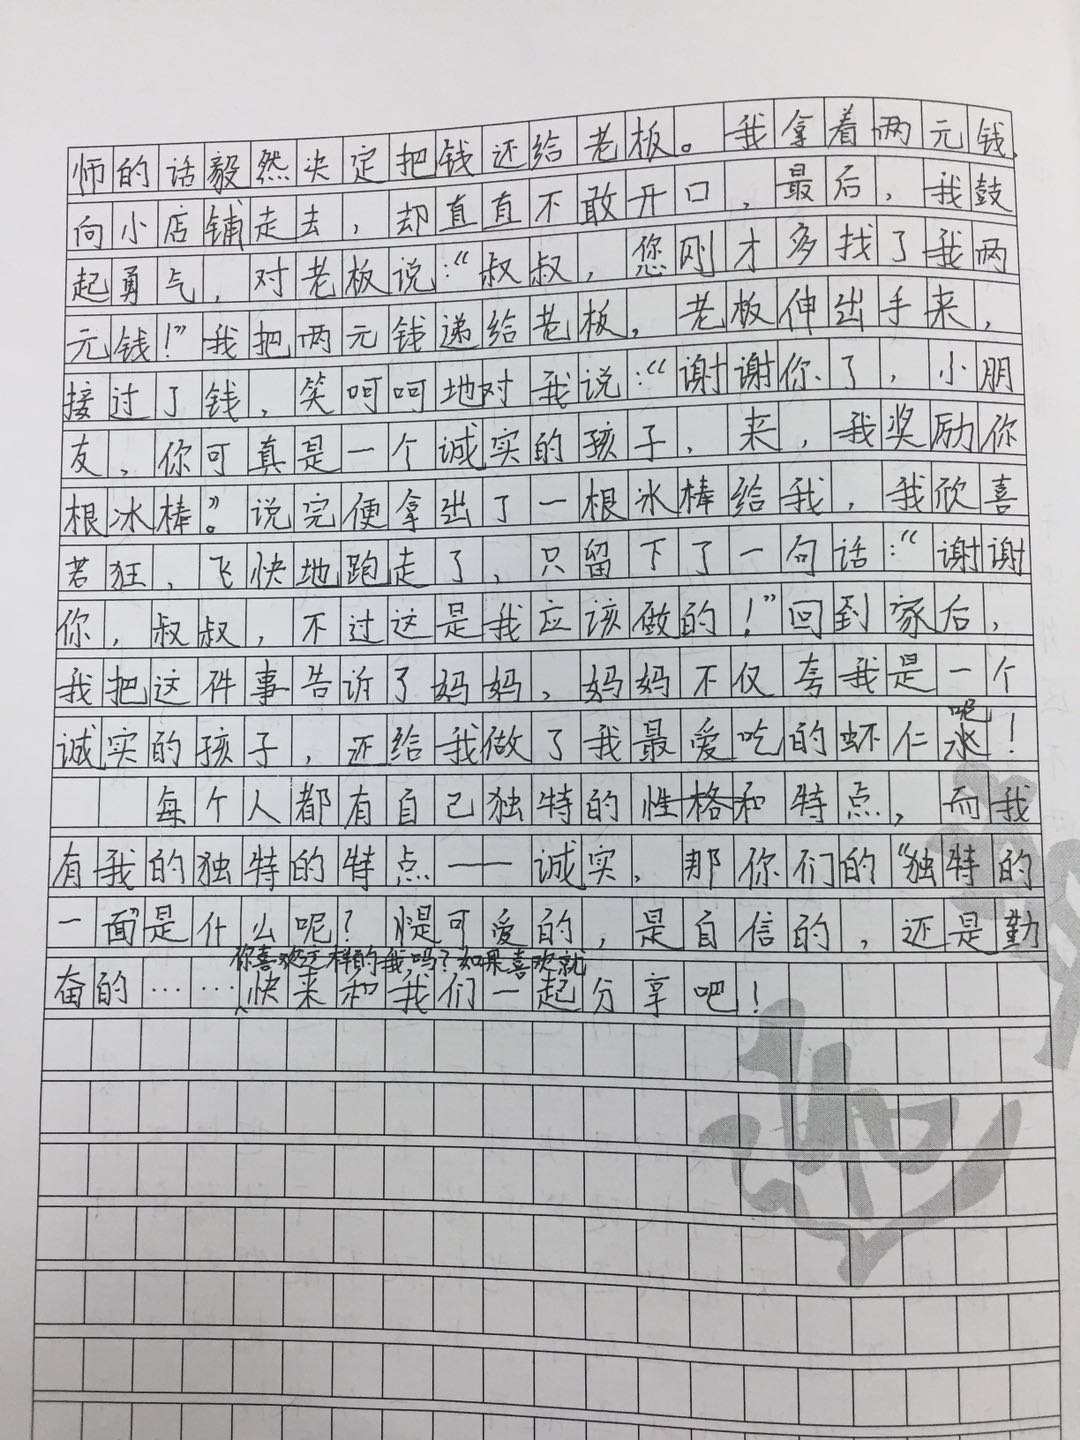 师的话毅然决定把钱还给老板。我拿着两元钱,
向小店铺走去，却直直不敢开口，最后，我鼓
起勇气，对老板说：“叔叔，您刚才多找了我两
元钱！”我把两元钱递给老板，老板伸出手来，
接过了钱，笑呵呵地对我说：“谢谢你了，小朋
友，你可真是一个诚实的孩子，来，我奖励你
根冰棒。”说完便拿出了一根冰棒给我，我欣喜
若狂，飞快地跑走了，只留下了一句话：“谢谢
你，叔叔，不过这是我应该做的！”回到家后，
我把这件事告诉了妈妈，妈妈不仅夸我是一个
诚实的孩子，还给我做了我最爱吃的虾仁水呢！
每个人都有自己独特的性格和特点，而我
有我的独特的特点——诚实，那你们的“独特的
一面”是什么呢？是可爱的，是自信的，还是勤
你喜欢这样的我吗？如果喜欢就
奋的……快来和我们一起分享吧！